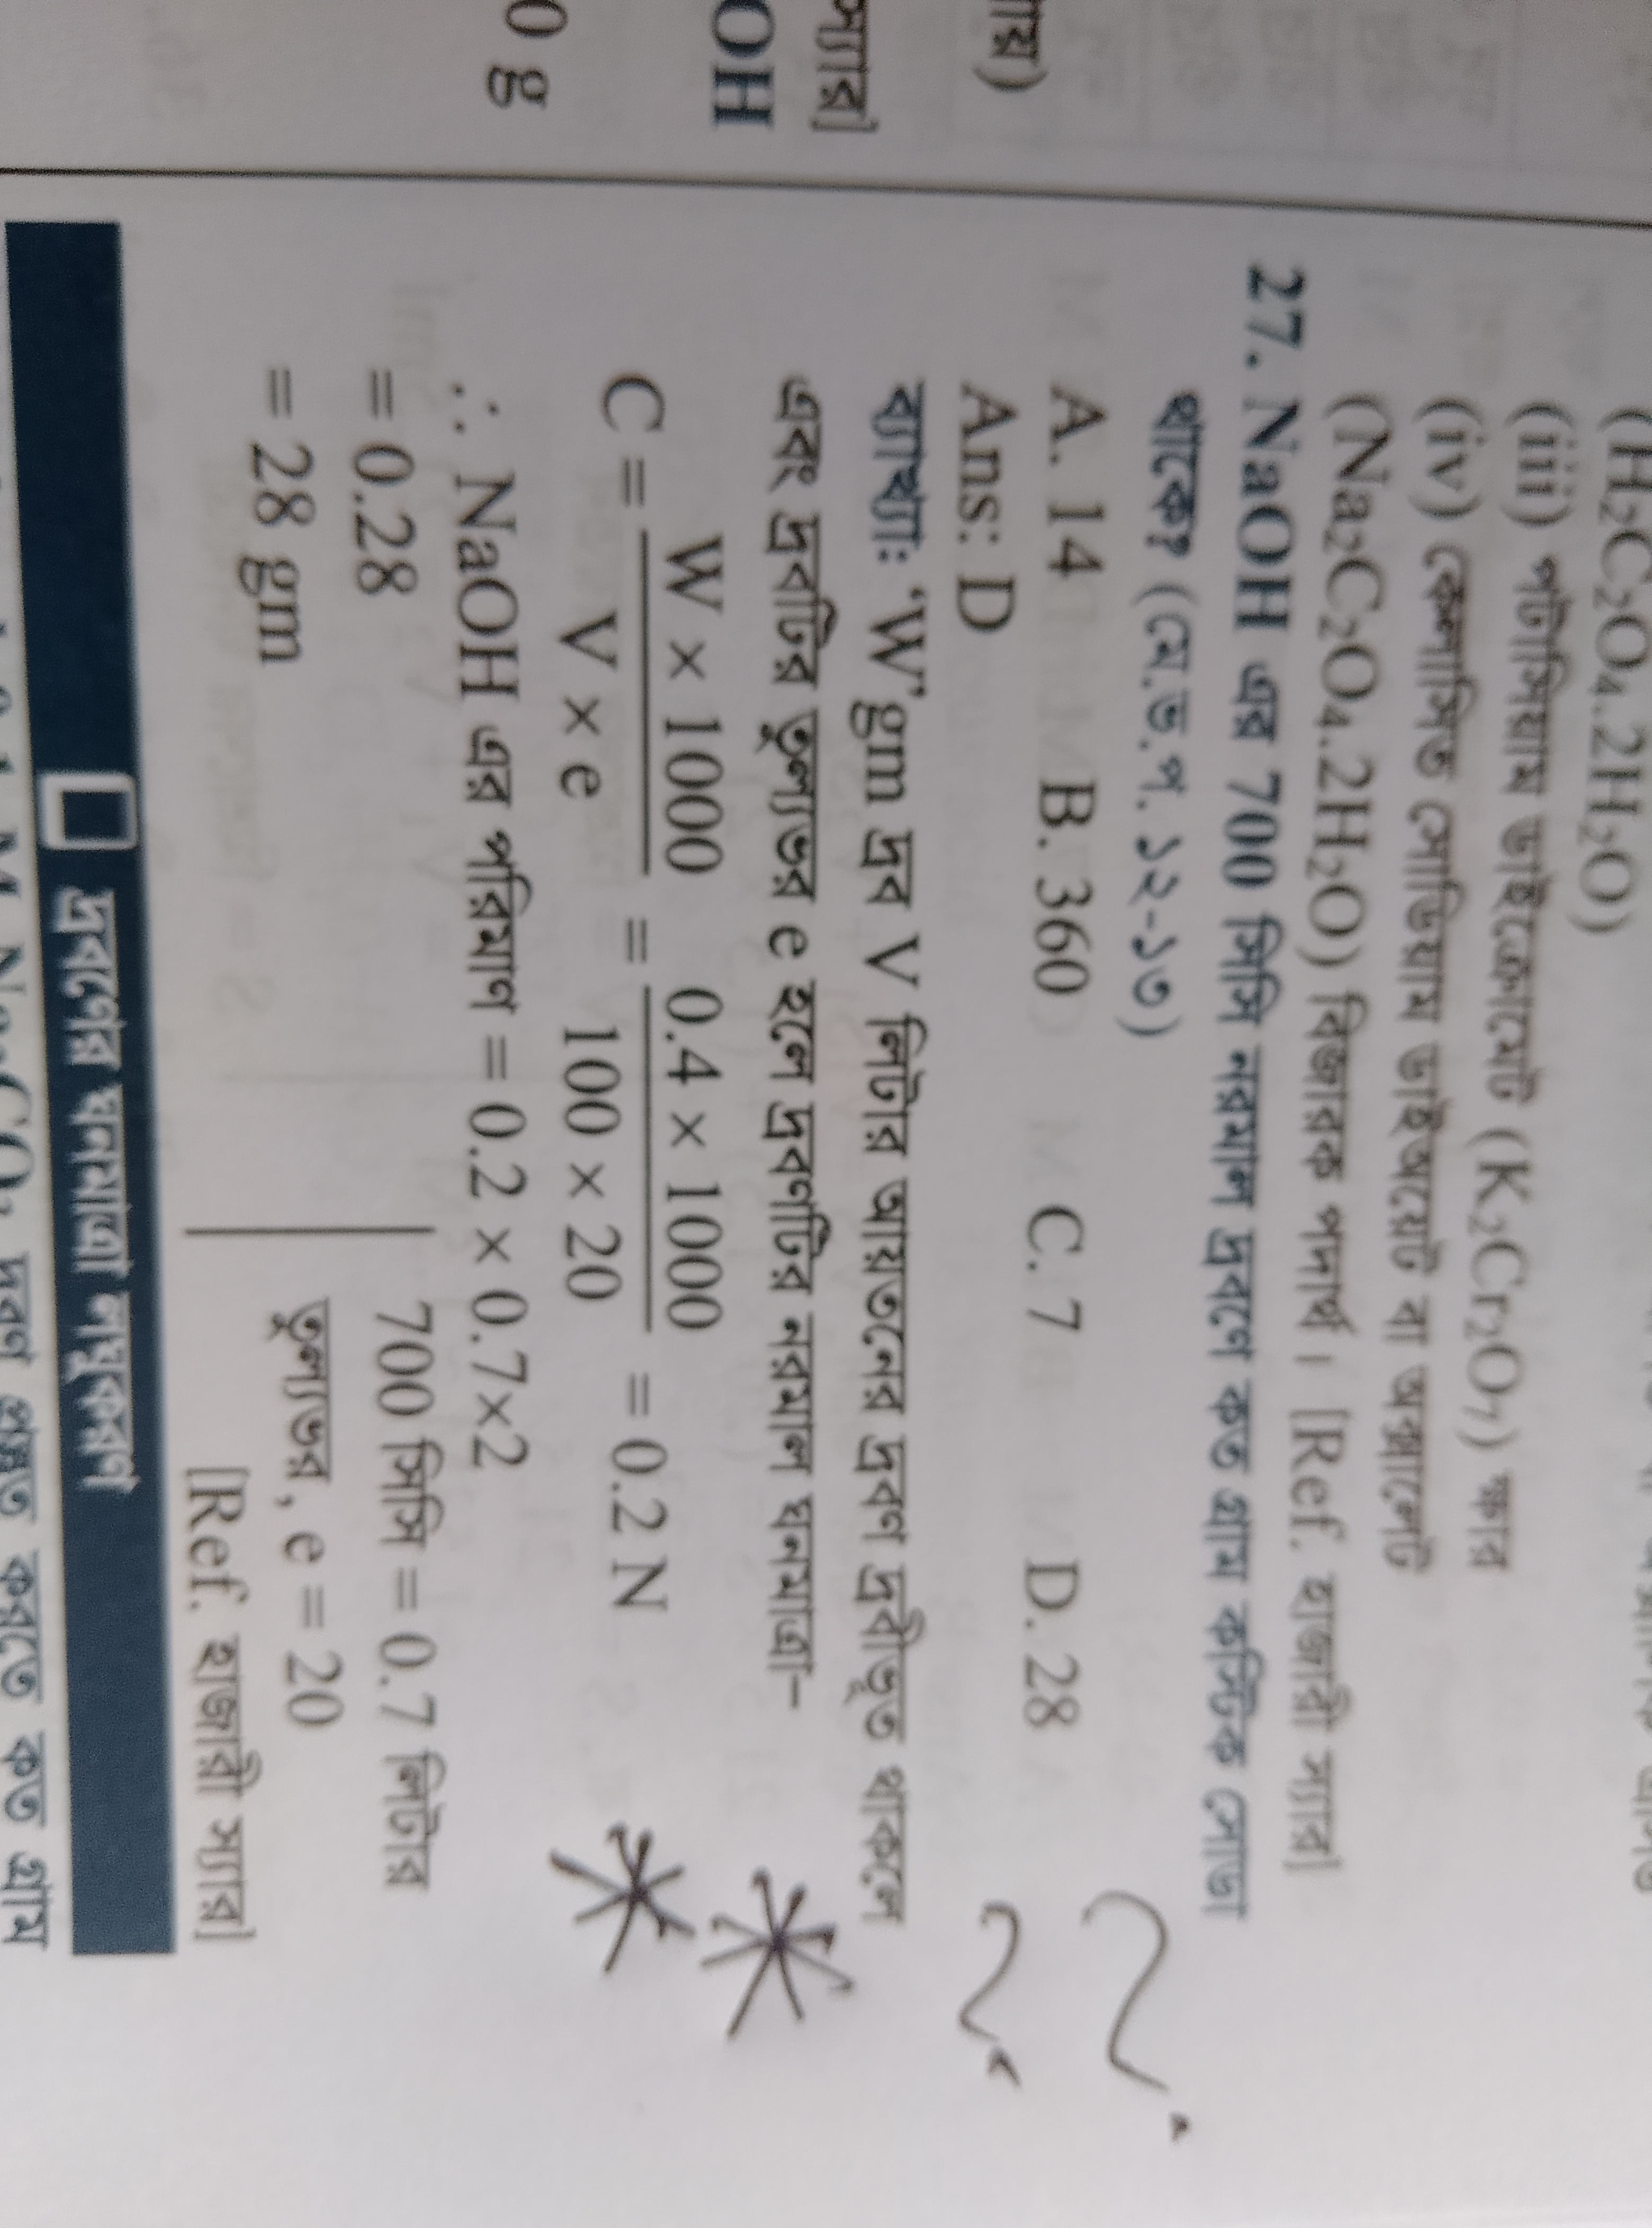 0 g
OH
প্যার]
ায়)
(H₂C₂O₄.2H₂O)
(iii) পটাসিয়াম ডাইক্রোমেট (K₂Cr₂O₇) ক্ষার
(iv) কেলাসিত সোডিয়াম ডাইঅক্সেট বা অক্সালেট
(Na₂C₂O₄.2H₂O) বিজারক পদার্থ। [Ref. হাজারী স্যার]
27. NaOH এর 700 সিসি নরমাল দ্রবণে কত গ্রাম কস্টিক সোডা
থাকে? (মে.ভ.প. ১২-১৩)
A. 14 B. 360 C. 7 D. 28
Ans: D
ব্যাখ্যাঃ 'W' gm দ্রব V লিটার আয়তনের দ্রবণ দ্রবীভূত থাকলে
এবং দ্রবটির তুল্যভর e হলে দ্রবণটির নরমাল ঘনমাত্রা-
C = W × 1000 / V × e = 0.4 × 1000 / 100 × 20 = 0.2 N
∴ NaOH এর পরিমাণ = 0.2 × 0.7×2
= 0.28
= 28 gm
700 সিসি = 0.7 লিটার
তুল্যভর, e = 20
[Ref. হাজারী স্যার]
দ্রবণের ঘনমাত্রা লঘুকরণ
M Na₂CO₃ দ্রবণ প্রস্তুত করতে কত গ্রাম